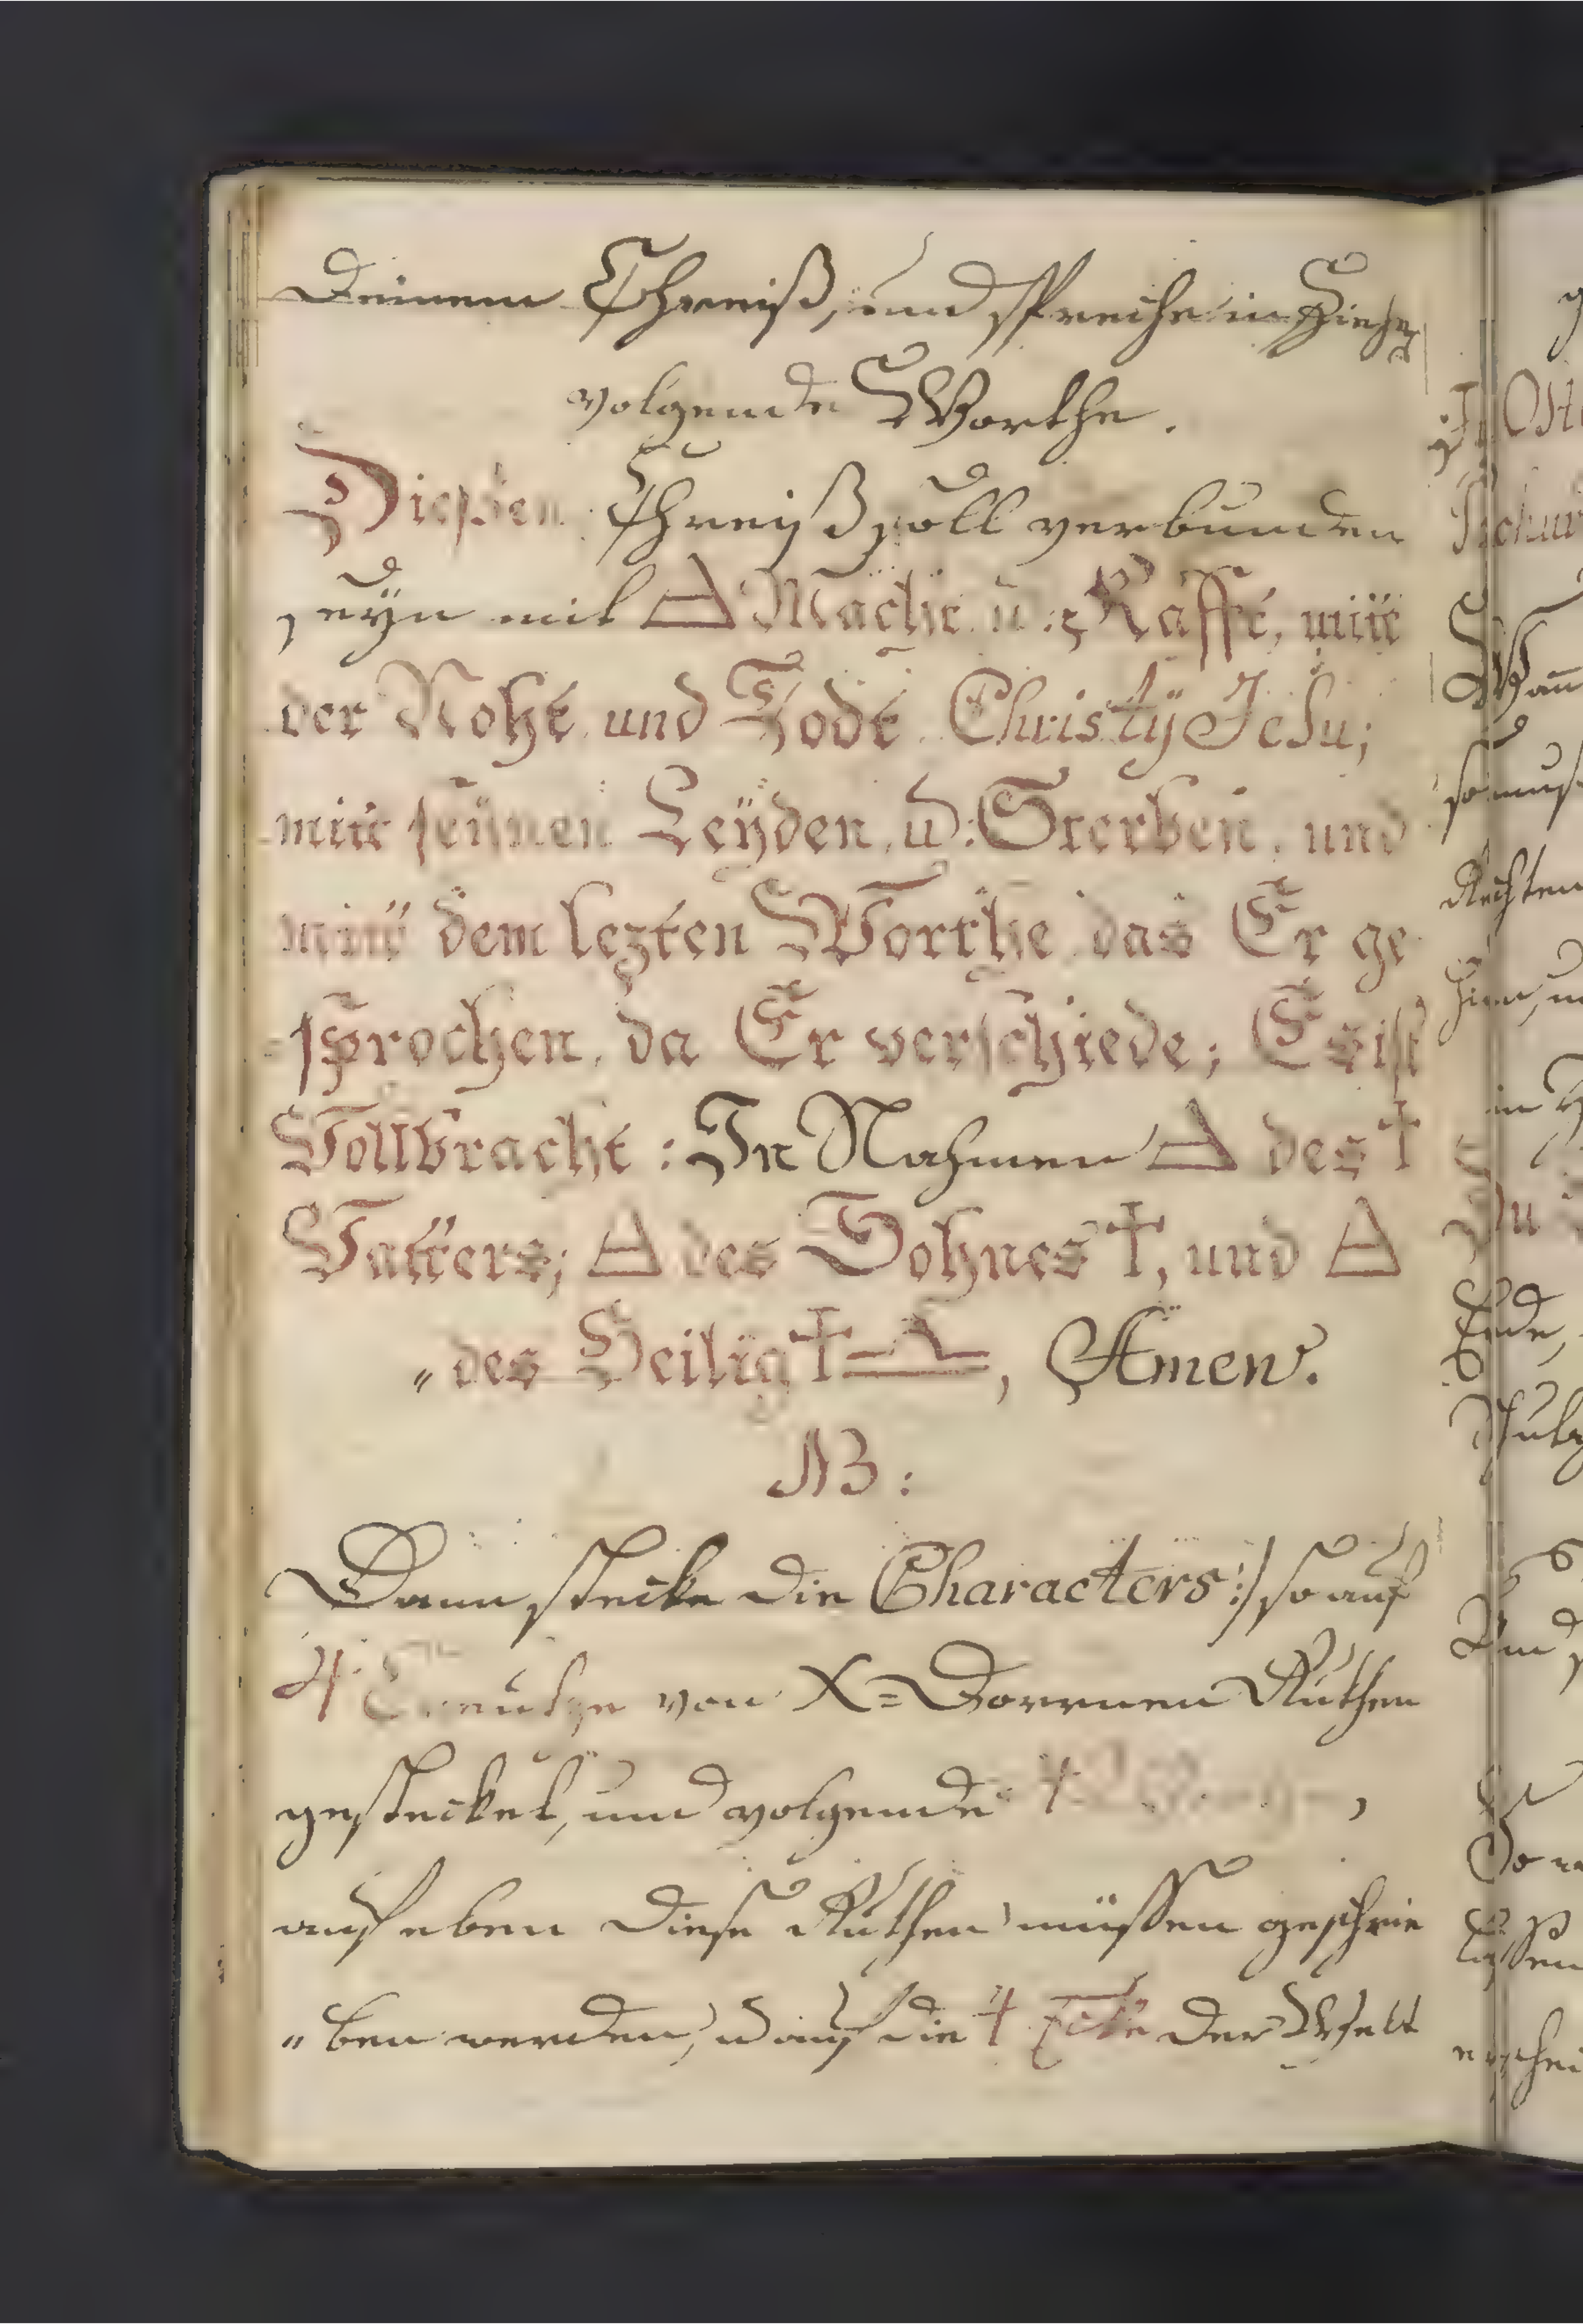 Deinem Chreiß, und spreche im Ziehen
volgende Worthe.
Dießen Chreyß soll verbunden
seyn mit △ Macht u: Kraffte, mitt
der Nohte und Todte Christÿ Jesu;
mitt seÿnen Leÿden, u: Sterben, und
mitt dem lezten Worthe das Er ge
sprochen, da Er verschiede; Es ist
Vollbracht: In Nahmen △ des †
Vatters; △ des Sohnes †, und △
„ des Heilig † △, Amen.
NB:
Dann stecke die Characters :/ so auf
4 Creutze von X=Dornen Ruthen
gesteckt, und volgende 4
auf eben diese Ruthen müssen geschrie
„ ben werden, u auf die 4 Ecke der Welt